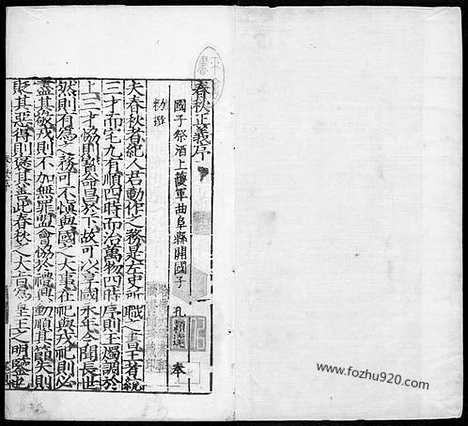 春秋正義序
國子祭酒上護軍曲阜縣開國子
孔穎達
奉
勑撰
夫春秋者紀人君動作之務是左史所職之書王者統
三才而宅九有順四時而治萬物四時序則玉燭調於
上三才協則寶命昌於下故可以享國永年令聞長世
然則有為之務可不慎與國之大事在祀與戎祀則必
盡其敬戎則不加無罪盟會協於禮興動順其節失則
貶其惡得則褒其善此春秋之大旨為皇王之明鑒也
www.fozhu920.com